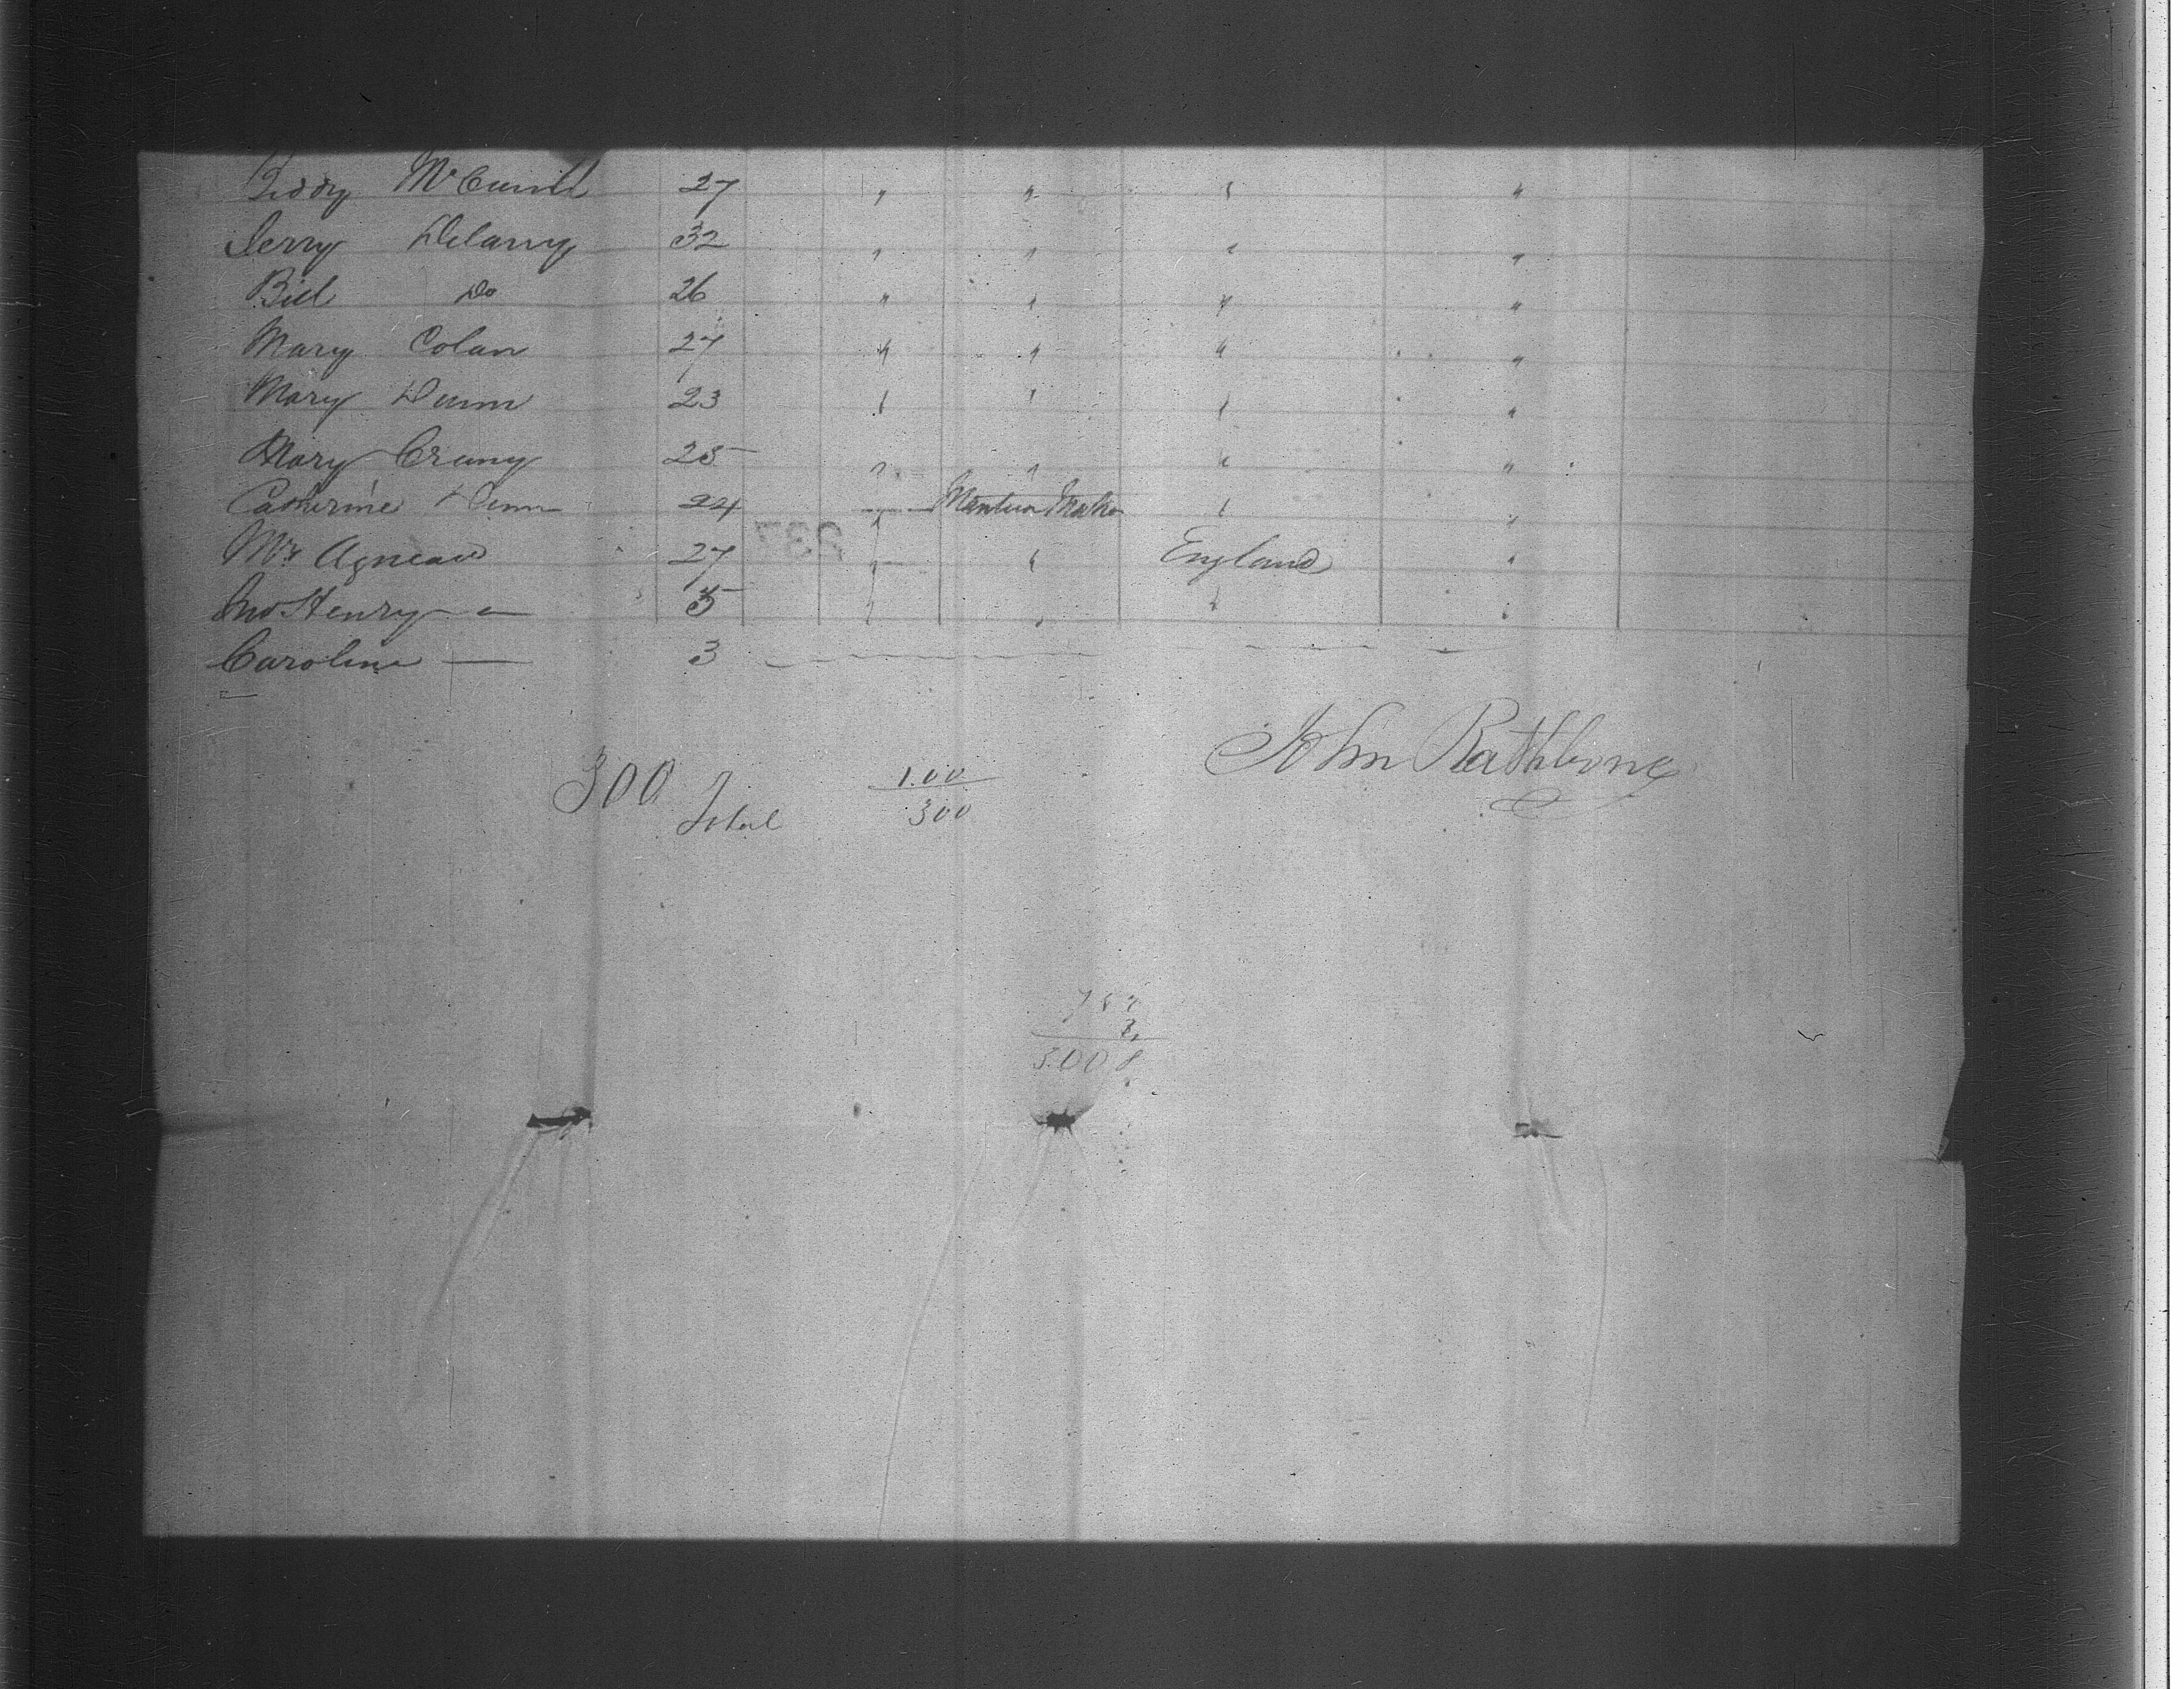 Biddy McCunill 27 " " " "
Jerry Delany 32 " " " "
Bill Do 26 " " " "
Mary Colan 27 " " " "
Mary Dunn 23 " " " "
Mary Crany 25 " " " "
Catherine Dunn 24 " Mantua Maker " "
Mrs Agnew 27 " " England "
Jno Henry — 5 " " " "
Caroline — 3 — — — —
300 Total
1.00
300
John Rathbone
3.00